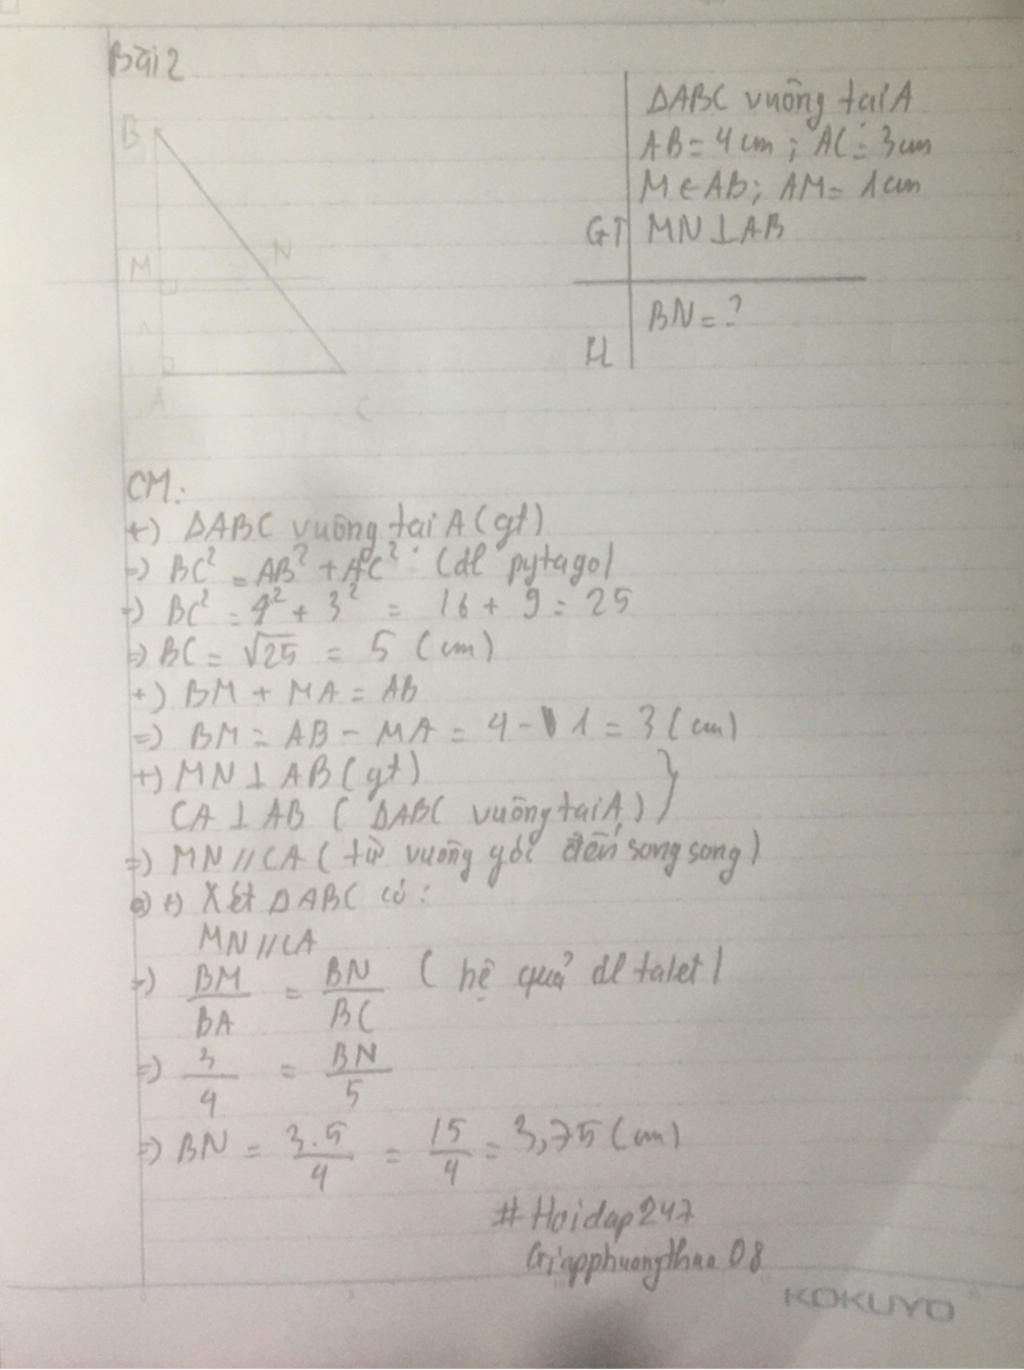 Bài 2
B
M
N
A
C
ΔABC vuông tại A
AB = 4 cm ; AC = 3 cm
M ∈ AB; AM = 1 cm
GT MN ⊥ AB
BN = ?
KL
CM:
+) ΔABC vuông tại A (gt)
=) BC² = AB² + AC² (đl pytago)
=) BC² = 4² + 3² = 16 + 9 = 25
=) BC = √25 = 5 (cm)
+) BM + MA = AB
=) BM = AB - MA = 4 - 1 = 3 (cm)
+) MN ⊥ AB (gt)
CA ⊥ AB ( ΔABC vuông tại A) }
=) MN // CA ( từ vuông góc đến song song)
+) Xét ΔABC có:
MN // CA
=) BM/BA = BN/BC ( hệ quả đl talet)
=) 3/4 = BN/5
=) BN = 3.5/4 = 15/4 = 3,75 (cm)
#Hoidap247
Giapphuongthao08
KOKUYO